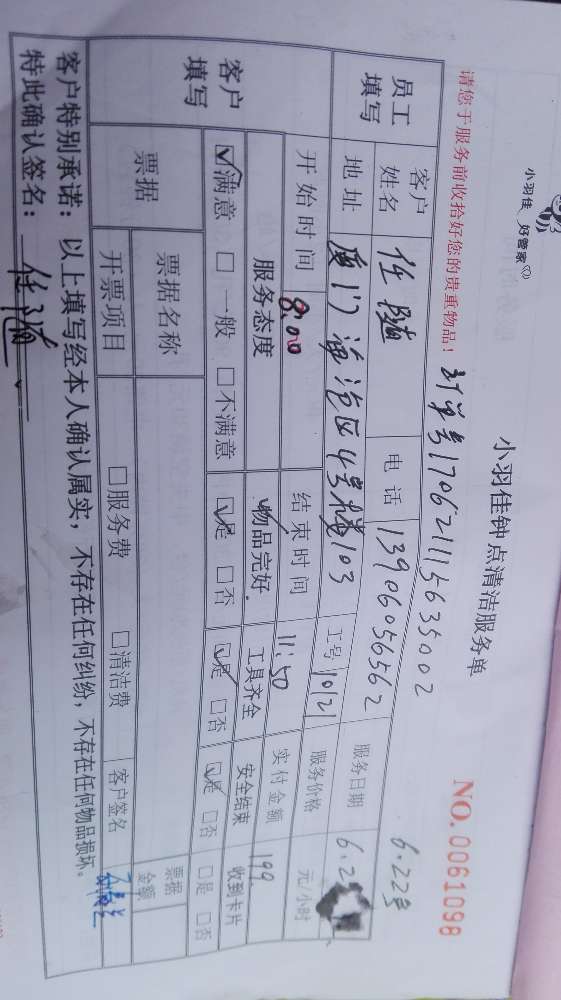 小羽佳 好管家
小羽佳钟点清洁服务单
NO. 0061098
请您于服务前收拾好您的贵重物品！ 订单号170621115635002 6.22号
员工填写 客户姓名 任 电话 13906056562 服务日期 6.2
地址 厦门海沧区4号楼103 工号 10121 服务价格 元/小时
开始时间 8:00 结束时间 11:50 实付金额 199
客户填写 服务态度 物品完好 工具齐全 安全结束 收到卡片
☑满意 □一般 □不满意 ☑是 □否 ☑是 □否 ☑是 □否 □是 □否
票据 票据名称 票据金额
开票项目 □服务费 □清洁费 客户签名
客户特别承诺：以上填写经本人确认属实，不存在任何纠纷，不存在任何物品损坏。
特此确认签名： 任